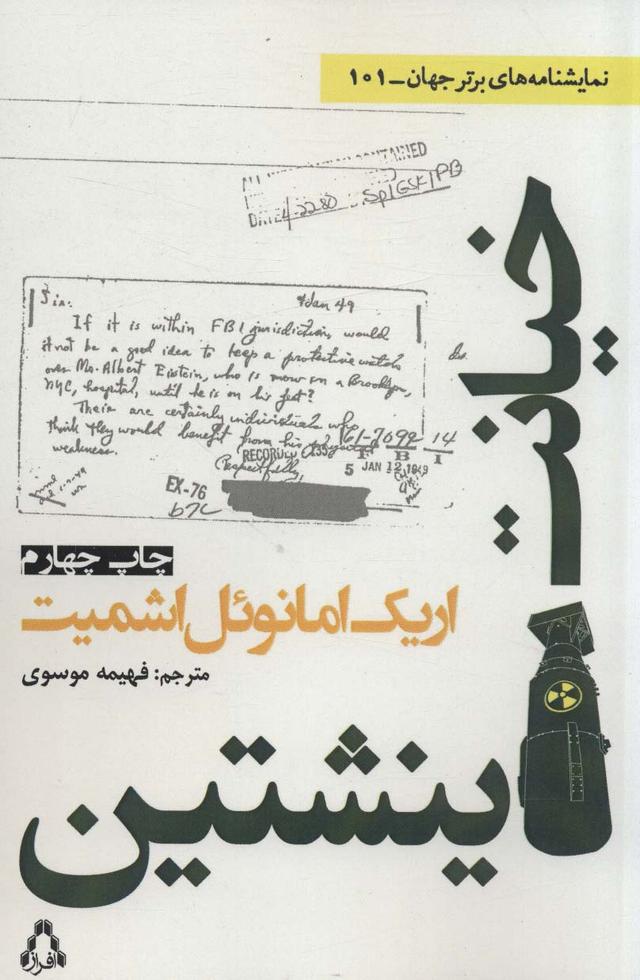 نمایشنامه‌های برتر جهان_۱۰۱
CONTAINED
DATE 4-22-80 Sp1GSK1PB
خیانت
Sir: 4 Jan 49
If it is within FBI jurisdiction, would
it not be a good idea to keep a protective watch
over Mr. Albert Eistein, who is now in a Brooklyn,
NYC, hospital, until he is on his feet?
Their are certainly individuals who
think they would benefit from his
weakness.
61-7099 14
RECORDED
5 JAN 12 1949
Respectfully,
EX-76
b7C
چاپ چهارم
اریک امانوئل اشمیت
مترجم: فهیمه موسوی
اینشتین
افراز